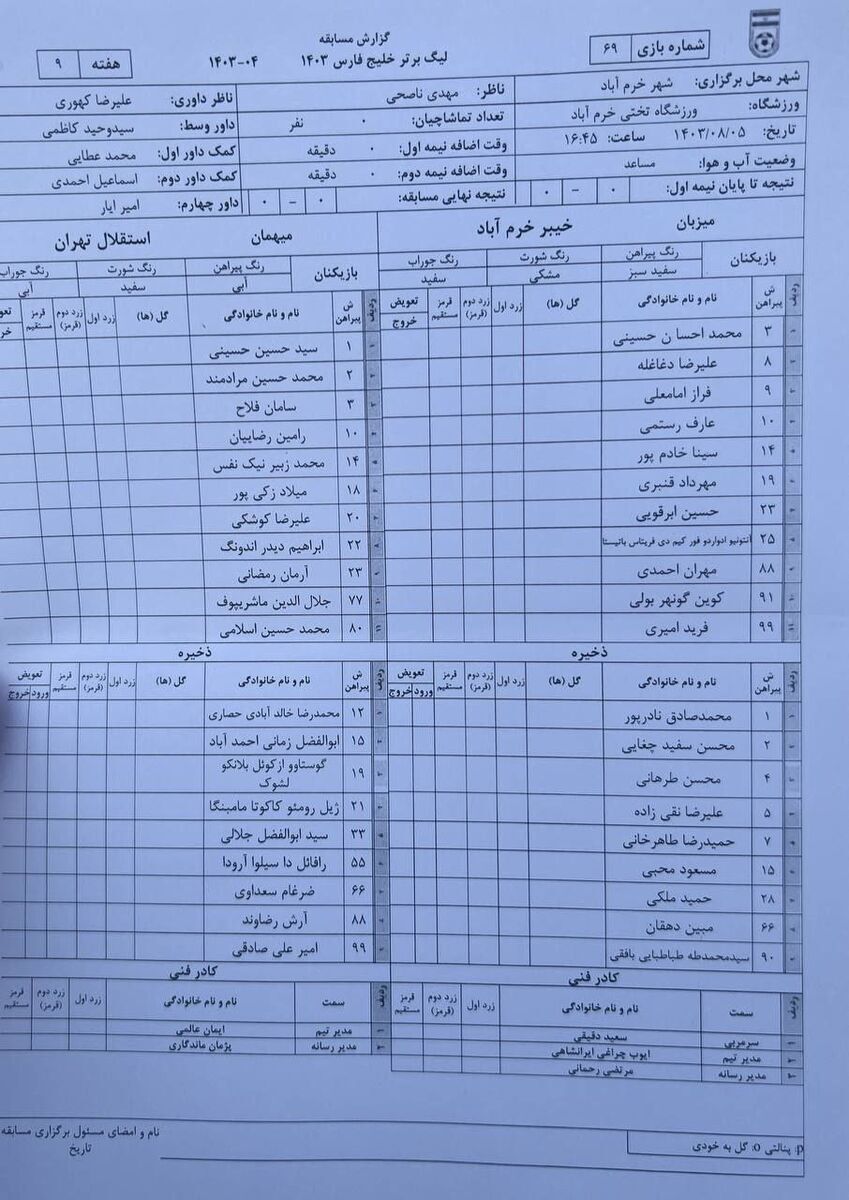 گزارش مسابقه
لیگ برتر خلیج فارس ۱۴۰۳ ۰۴-۱۴۰۳
شماره بازی ۶۹
هفته ۹
شهر محل برگزاری: شهر خرم آباد
ورزشگاه: ورزشگاه تختی خرم آباد
تاریخ: ۱۴۰۳/۰۸/۰۵ ساعت: ۱۶:۴۵
وضعیت آب و هوا: مساعد
نتیجه تا پایان نیمه اول: ۰ - ۰
ناظر: مهدی ناصحی
تعداد تماشاچیان: ۰ نفر
وقت اضافه نیمه اول: ۰ دقیقه
وقت اضافه نیمه دوم: ۰ دقیقه
نتیجه نهایی مسابقه: ۰ - ۰
ناظر داوری: علیرضا کهوری
داور وسط: سیدوحید کاظمی
کمک داور اول: محمد عطایی
کمک داور دوم: اسماعیل احمدی
داور چهارم: امیر ایار
میزبان خیبر خرم آباد
بازیکنان رنگ پیراهن رنگ شورت رنگ جوراب
سفید سبز مشکی سفید
ردیف ش پیراهن نام و نام خانوادگی گل (ها) زرد اول زرد دوم (قرمز) قرمز مستقیم تعویض خروج
۱ ۳ محمد احسا ن حسینی
۲ ۸ علیرضا دغاغله
۳ ۹ فراز امامعلی
۴ ۱۰ عارف رستمی
۵ ۱۴ سینا خادم پور
۶ ۱۹ مهرداد قنبری
۷ ۲۳ حسین ابرقویی
۸ ۲۵ آنتونیو ادواردو فور کیم دی فریتاس باتیستا
۹ ۸۸ مهران احمدی
۱۰ ۹۱ کوین گونهر بولی
۱۱ ۹۹ فرید امیری
ذخیره
ردیف ش پیراهن نام و نام خانوادگی گل (ها) زرد اول زرد دوم (قرمز) قرمز مستقیم تعویض ورود خروج
۱ ۱ محمدصادق نادرپور
۲ ۲ محسن سفید چغایی
۳ ۴ محسن طرهانی
۴ ۵ علیرضا نقی زاده
۵ ۷ حمیدرضا طاهرخانی
۶ ۱۵ مسعود محبی
۷ ۲۸ حمید ملکی
۸ ۶۶ مبین دهقان
۹ ۹۰ سیدمحمدطه طباطبایی بافقی
کادر فنی
ردیف سمت نام و نام خانوادگی زرد اول زرد دوم (قرمز) قرمز مستقیم
۱ سرمربی سعید دقیقی
۲ مدیر تیم ایوب چراغی ایرانشاهی
۳ مدیر رسانه مرتضی رحمانی
میهمان استقلال تهران
بازیکنان رنگ پیراهن رنگ شورت رنگ جوراب
آبی سفید آبی
ردیف ش پیراهن نام و نام خانوادگی گل (ها) زرد اول زرد دوم (قرمز) قرمز مستقیم خروج
۱ ۱ سید حسین حسینی
۲ ۲ محمد حسین مرادمند
۳ ۳ سامان فلاح
۴ ۱۰ رامین رضاییان
۵ ۱۴ محمد زبیر نیک نفس
۶ ۱۸ میلاد زکی پور
۷ ۲۰ علیرضا کوشکی
۸ ۲۲ ابراهیم دیدر اندونگ
۹ ۲۳ آرمان رمضانی
۱۰ ۷۷ جلال الدین ماشریپوف
۱۱ ۸۰ محمد حسین اسلامی
ذخیره
ردیف ش پیراهن نام و نام خانوادگی گل (ها) زرد اول زرد دوم (قرمز) قرمز مستقیم تعویض ورود خروج
۱ ۱۲ محمدرضا خالد آبادی حصاری
۲ ۱۵ ابوالفضل زمانی احمد آباد
۳ ۱۹ گوستاوو ازکوئل بلانکو
لشوک
۴ ۲۱ ژیل رومئو کاکوتا مامبنگا
۵ ۳۳ سید ابوالفضل جلالی
۶ ۵۵ رافائل دا سیلوا آرودا
۷ ۶۶ ضرغام سعداوی
۸ ۸۸ آرش رضاوند
۹ ۹۹ امیر علی صادقی
کادر فنی
ردیف سمت نام و نام خانوادگی زرد اول زرد دوم (قرمز) قرمز مستقیم
۱ مدیر تیم ایمان عالمی
۲ مدیر رسانه پژمان ماندگاری
p: پنالتی o: گل به خودی
نام و امضای مسئول برگزاری مسابقه
تاریخ